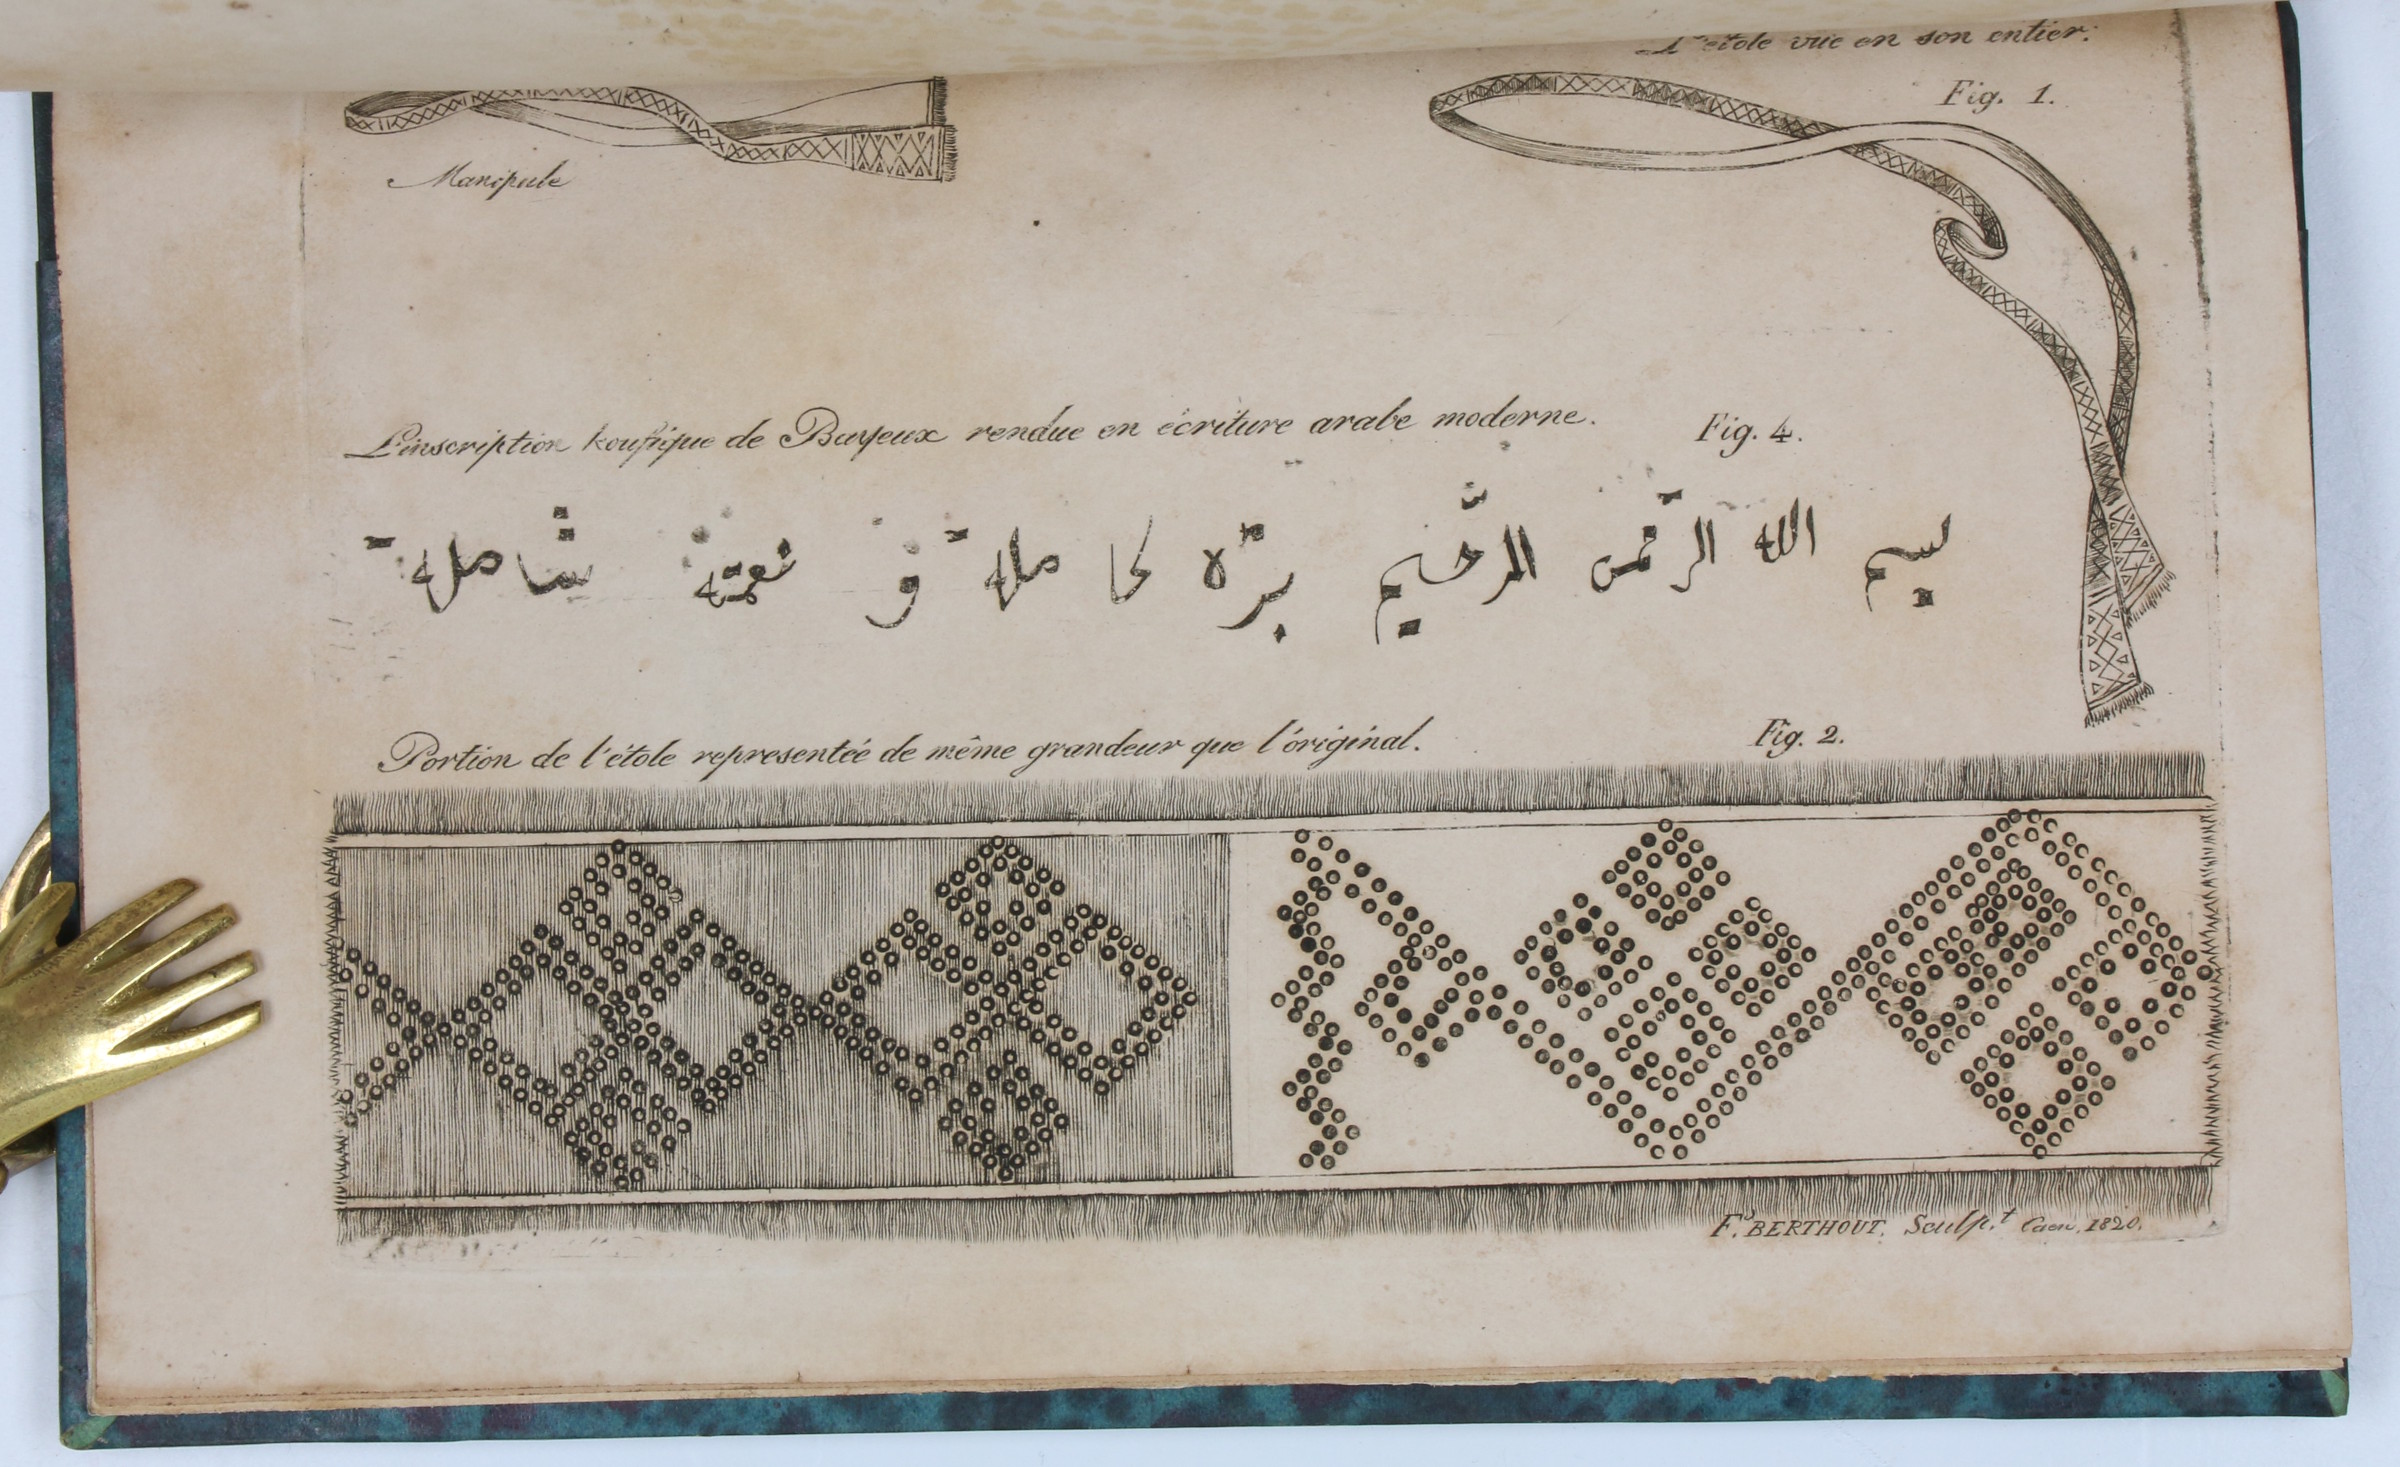 L'étole vue en son entier.
Fig. 1.
Manipule
L'inscription koufique de Bayeux rendue en écriture arabe moderne. Fig. 4.
بسم الله الرّحمن الرّحيم برّه كاملة و نعمته شاملة
Portion de l'étole representée de même grandeur que l'original. Fig. 2.
F. BERTHOUT. Sculp.t Caen, 1820.